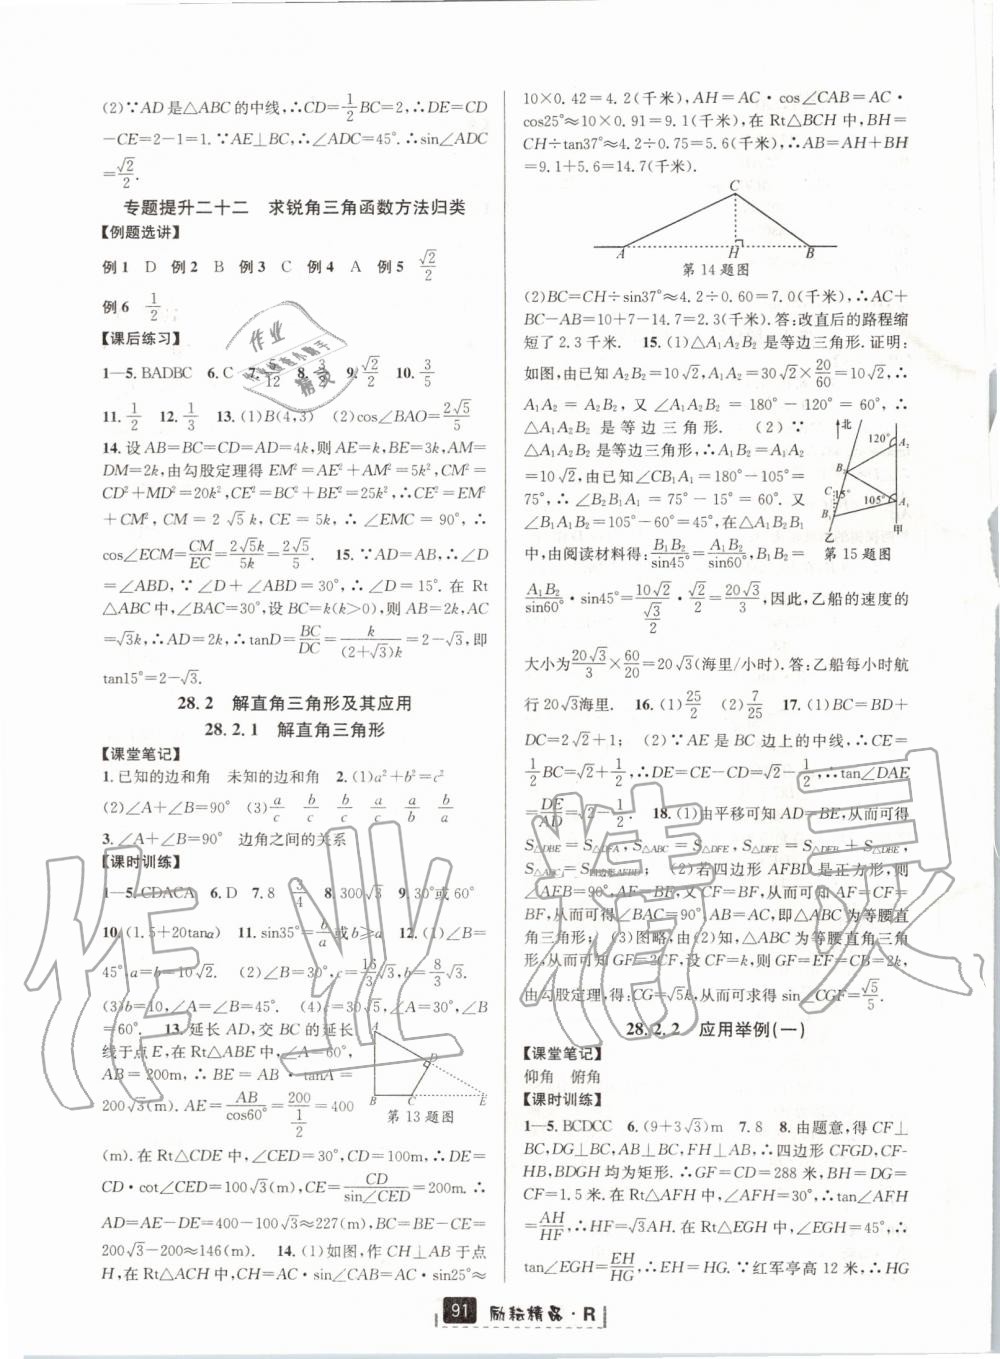 (2)∵AD是△ABC的中线,∴CD=1/2BC=2,∴DE=CD
-CE=2-1=1.∵AE⊥BC,∴∠ADC=45°.∴sin∠ADC
=√2/2.
专题提升二十二　求锐角三角函数方法归类
【例题选讲】
例1　D　例2　B　例3　C　例4　A　例5　√2/2
例6　1/2
【课后练习】
1—5. BADBC　6. C　7. 5/12　8. 3/4　9. √2/2　10. 3/5
11. 1/2　12. 1/3　13. (1)B(4,3)　(2)cos∠BAO=2√5/5
14. 设AB=BC=CD=AD=4k,则AE=k,BE=3k,AM=
DM=2k,由勾股定理得EM²=AE²+AM²=5k²,CM²=
CD²+MD²=20k²,CE²=BC²+BE²=25k²,∴CE²=EM²
+CM²,CM=2√5k,CE=5k,∴∠EMC=90°,∴
cos∠ECM=CM/EC=2√5k/5k=2√5/5.　15. ∵AD=AB,∴∠D
=∠ABD,∵∠D+∠ABD=30°,∴∠D=15°.在Rt
△ABC中,∠BAC=30°,设BC=k(k>0),则AB=2k,AC
=√3k,∴AD=2k,∴tanD=BC/DC=k/(2+√3)k=2-√3,即
tan15°=2-√3.
28.2　解直角三角形及其应用
28.2.1　解直角三角形
【课堂笔记】
1. 已知的边和角　未知的边和角　2. (1)a²+b²=c²
(2)∠A+∠B=90°　(3)a/c　b/c　b/c　a/c　a/b　b/a
3. ∠A+∠B=90°　边角之间的关系
【课时训练】
1—5. CDACA　6. D　7. 8　3/4　8. 300√3　9. 30°或60°
10. (1.5+20tanα)　11. sin35°=b/a或b≥a　12. (1)∠B=
45°　a=b=10√2.　(2)∠B=30°,c=16/3√3,b=8/3√3.
(3)b=10,∠A=∠B=45°.　(4)c=30√5,∠A=30°,∠B
=60°.　13. 延长AD,交BC的延长
线于点E,在Rt△ABE中,∠A=60°,
AB=200m,∴BE=AB·tanA=
200√3(m).AE=AB/cos60°=200/(1/2)=400
A
D
B
C
E
第13题图
(m).在Rt△CDE中,∠CED=30°,CD=100m,∴DE=
CD·cot∠CED=100√3(m),CE=CD/sin∠CED=200m.∴
AD=AE-DE=400-100√3≈227(m),BC=BE-CE=
200√3-200≈146(m).　14. (1)如图,作CH⊥AB于点
H,在Rt△ACH中,CH=AC·sin∠CAB=AC·sin25°≈
10×0.42=4.2(千米),AH=AC·cos∠CAB=AC·
cos25°≈10×0.91=9.1(千米),在Rt△BCH中,BH=
CH÷tan37°≈4.2÷0.75=5.6(千米),∴AB=AH+BH
=9.1+5.6=14.7(千米).
C
A
H
B
第14题图
(2)BC=CH÷sin37°≈4.2÷0.60=7.0(千米),∴AC+
BC-AB=10+7-14.7=2.3(千米).答:改直后的路程缩
短了2.3千米.　15. (1)△A₁A₂B₂是等边三角形.证明:
如图,由已知A₂B₂=10√2,A₁A₂=30√2×20/60=10√2,∴
A₁A₂=A₂B₂,又∠A₁A₂B₂=180°-120°=60°,∴
△A₁A₂B₂是等边三角形.　(2)∵
△A₁A₂B₂是等边三角形,∴A₁B₂=A₁A₂
=10√2,由已知∠CB₁A₁=180°-105°=
75°,∴∠B₂B₁A₁=75°-15°=60°.又
∠B₁A₁B₂=105°-60°=45°,在△A₁B₂B₁
中,由阅读材料得:B₁B₂/sin45°=A₁B₂/sin60°,B₁B₂=
北
120°
A₂
B₂
15°
105°
C
A₁
B₁
乙
甲
第15题图
A₁B₂/sin60°·sin45°=10√2/(√3/2)·√2/2=20√3/3,因此,乙船的速度的
大小为20√3/3×60/20=20√3(海里/小时).答:乙船每小时航
行20√3海里.　16. (1)25/2　(2)7/25　17. (1)BC=BD+
DC=2√2+1;　(2)∵AE是BC边上的中线,∴CE=
1/2BC=√2+1/2,∴DE=CE-CD=√2-1/2,∴tan∠DAE
=DE/AD=√2-1/2.　18. (1)由平移可知AD=BE,从而可得
S△DBE=S△DFA,S△ABC=S△DFE,S△DFE=S△DEB+S△DBF,
∴S△ABC=S四边形AFBD;　(2)若四边形AFBD是正方形,则
∠AFB=90°,AF=BF,又CF=BF,从而可知AF=CF=
BF,从而可得∠BAC=90°,AB=AC,即△ABC为等腰直
角三角形;　(3)图略,由(2)知,△ABC为等腰直角三角
形,从而可知GF=2CF,设CF=k,则GF=EF=CB=2k,
由勾股定理,得:CG=√5k,从而可求得sin∠CGF=√5/5.
28.2.2　应用举例(一)
【课堂笔记】
仰角　俯角
【课时训练】
1—5. BCDCC　6. (9+3√3)m　7. 8　8. 由题意,得CF⊥
BC,DG⊥BC,AB⊥BC,FH⊥AB,∴四边形CFGD,CF-
HB,BDGH均为矩形.∴GF=CD=288米,BH=DG=
CF=1.5米.在Rt△AFH中,∠AFH=30°,∴tan∠AFH
=AH/HF,∴HF=√3AH.在Rt△EGH中,∠EGH=45°,∴
tan∠EGH=EH/HG,∴EH=HG.∵红军亭高12米,∴HG
91　励耘精品·R
作业精灵